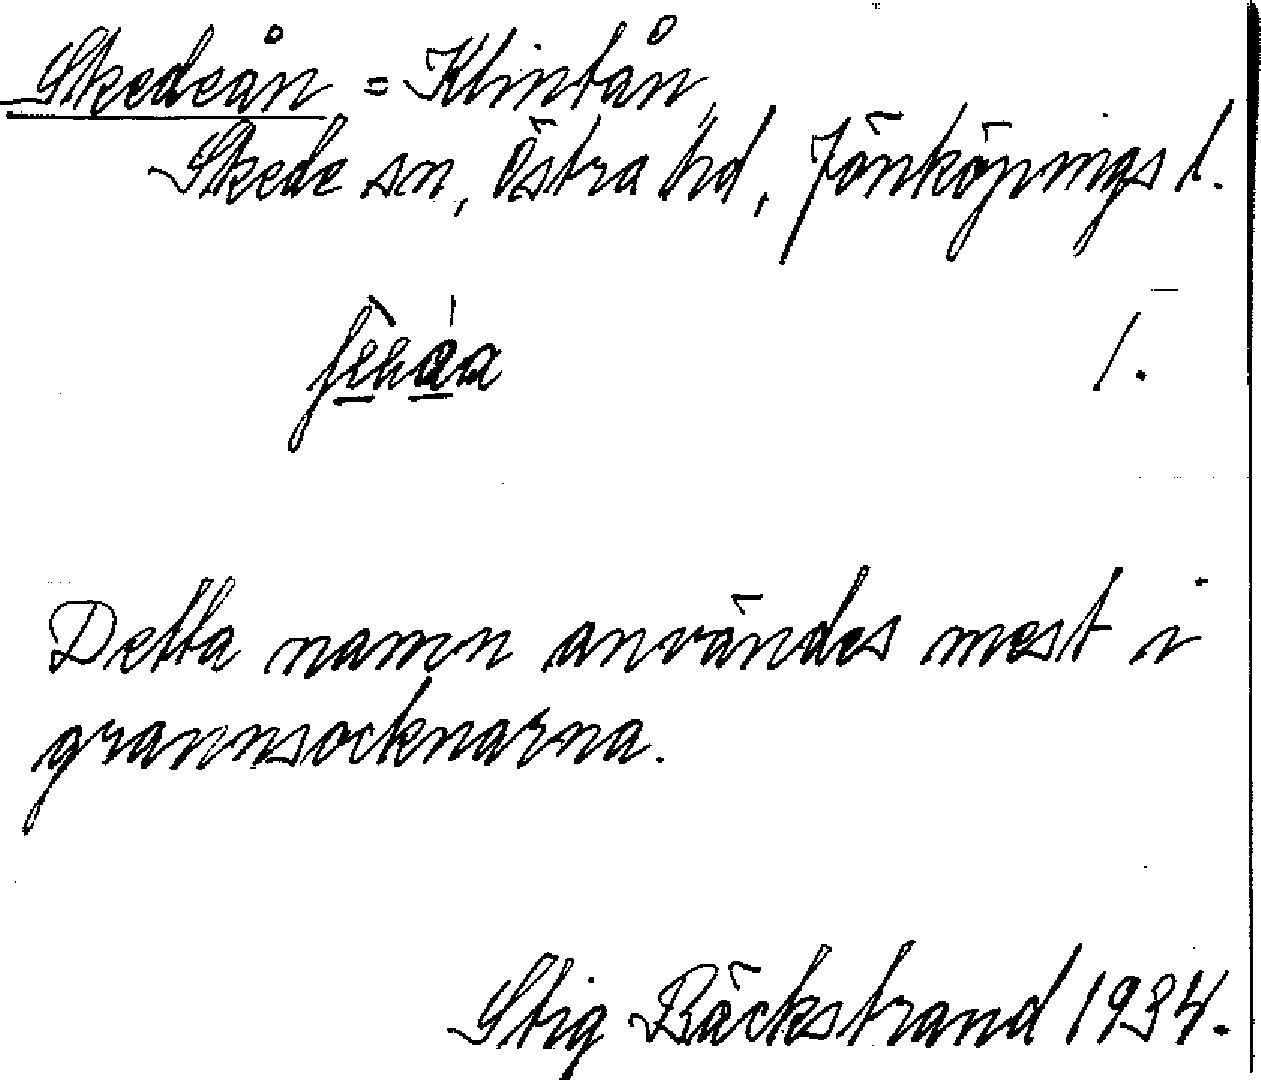 Skedeån = Klintån,
Skede sn, Östra hd, Jönköpings l.
l.
Detta namn användes mest i
grannsocknarna.
Stig Bäckstrand 1934.